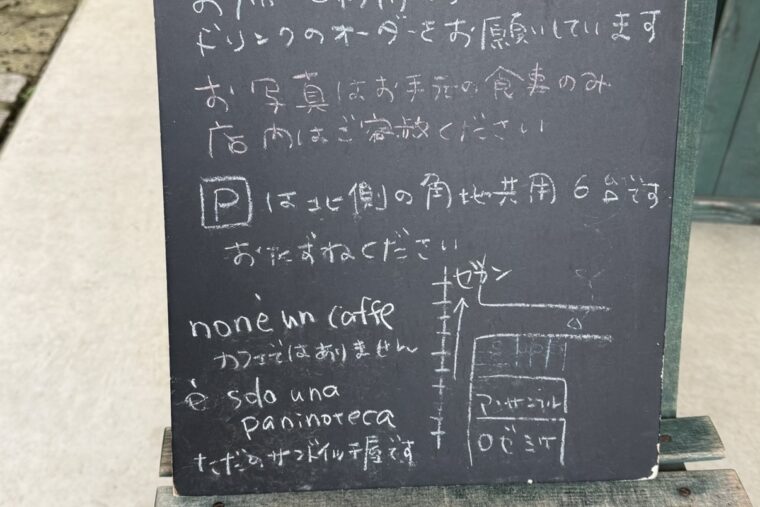 ドリンクのオーダーをお願いしています
お写真はお手元の食事のみ
店内はご容赦ください
P は北側の角地共用 6台です
おたずねください
セブン
non è un caffe
カフェではありません
è solo una
paninoteca
ただのサンドイッチ屋です
P
アンサンブル
ロゼミケ